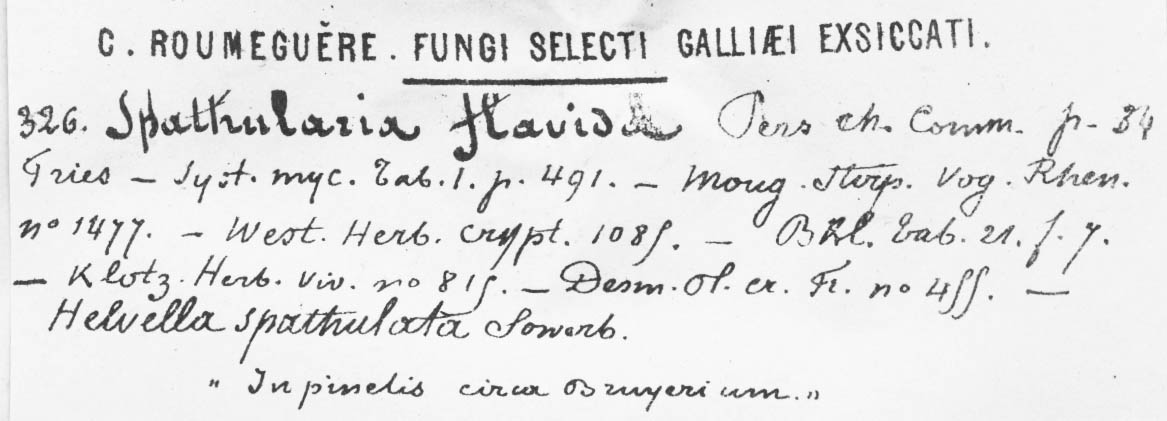 C. ROUMEGUÈRE. FUNGI SELECTI GALLIÆI EXSICCATI.
326. Spathularia flavida Pers ch. Comm. p. 34
Fries – Syst. myc. Tab. 1. p. 491. – Moug. Stirp. Vog. Rhen.
no 1477. – West. Herb. crypt. 1085. – Bkl. Tab. 21. f. 7.
– Klotz. Herb. viv. no 815. – Desm. Pl. cr. Fr. no 455. –
Helvella spathulata Sowerb.
" In pinetis circa Bruyerium. "